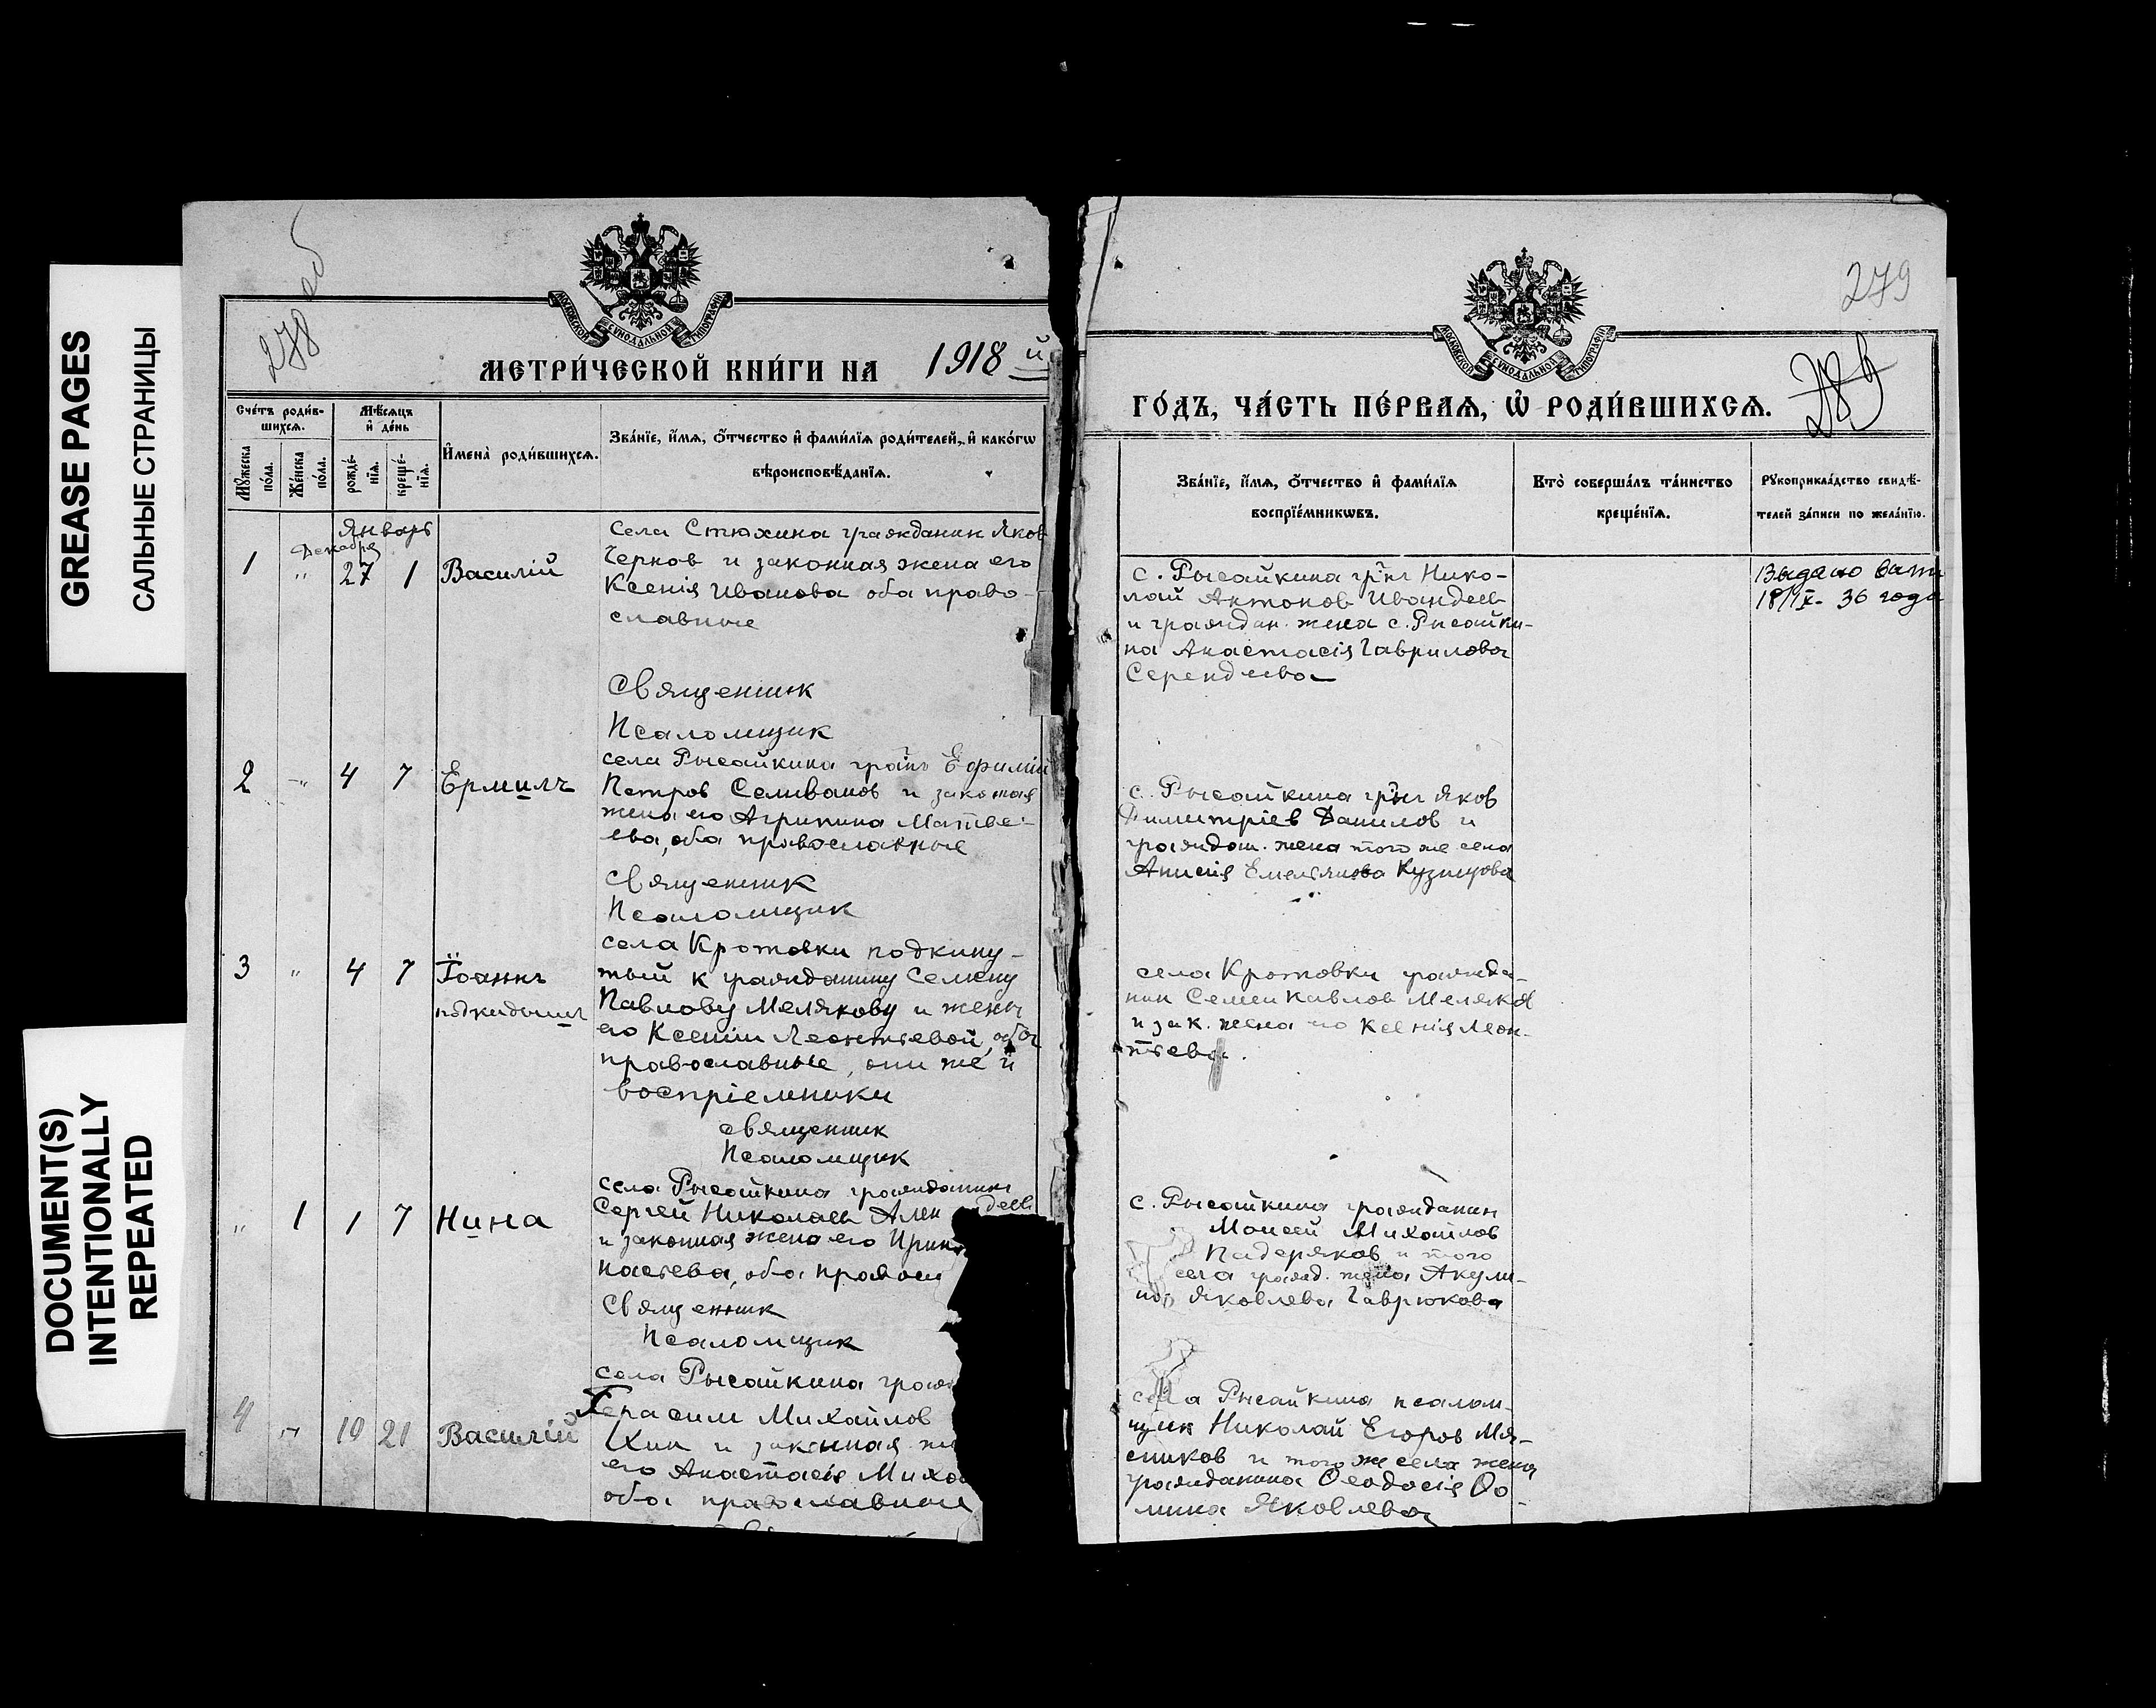 GREASE PAGES
САЛЬНЫЕ СТРАНИЦЫ
DOCUMENT(S)
INTENTIONALLY
REPEATED
278 об
МОСКОВСКОЙ СѴНОДАЛЬНОЙ ТИПОГРАФІИ
МЕТРИ́ЧЕСКОЙ КНИ́ГИ НА 1918 й
Сче́тъ роди́в-
шихсѧ.
Мѣ́сѧцъ
и҆ де́нь
Мꙋ́жеска
по́ла.
Же́нска
по́ла.
рожде́-
нїѧ.
креще́-
нїѧ.
И҆мена̀ роди́вшихсѧ.
Зва́нїе, и҆́мѧ, ѻ҆́тчество и҆ фами́лїѧ роди́телей, и҆ како́гѡ
вѣроисповѣ́данїѧ.
Январь
Декабря
1 " 27 1 Василій
села Стюхина гражданин Яков
Чернов и законная жена его
Ксенія Иванова оба право-
славные
Священник
Псаломщик
2 -"- 4 7 Ермилъ
села Рысайкина гр-нъ Ефимій
Петров Селиванов и законая
жена его Агрипина Матве-
ева, оба православные
Священник
Псаломщик
3 " 4 7 Іоаннъ
подкидышъ
села Кротовки подкину-
тый к гражданину Семену
Павлову Мелякову и жены
его Ксеніи Леонтьевой, оба
православные, они же и
воспріемники
священник
Псаломщик
" 1 1 7 Нина
села Рысайкина гражданин
Сергей Николаев Ален деев
и законная жена его Ирин
оба правосл
Священник
Псаломщик
4 -"- 19 21 Василій
села Рысайкина граж
Герасим Михайлов
и законная же
его Анастасія Михо
оба православные
279
289
МОСКОВСКОЙ СѴНОДАЛЬНОЙ ТИПОГРАФІИ
ГО́ДЪ, ЧА́СТЬ ПЕ́РВАѦ, Ѽ РОДИ́ВШИХСѦ.
Зва́нїе, и҆́мѧ, ѻ҆́тчество и҆ фами́лїѧ
воспрїе́мникѡвъ.
Кто̀ соверша́лъ та́инство
креще́нїѧ.
Рꙋкоприкла́дство свидѣ́-
телей за́писи по жела́нїю.
с. Рысайкина гр-нъ Нико-
лай Антонов Ивандеев
и граждан. жена с. Рысайки-
на Анастасія Гаврилова
Серендеева
Выдано
18/IX - 36 года
с. Рысайкина гр-нъ Яков
Димитріев Данилов и
граждан. жена того же села
Анисія Емельянова Кузнецова
села Кротовки гражда-
нин Семен Павлов Меляков
и зак. жена его Ксенія Леон-
тьева.
с. Рысайкина гражданин
Моисей Михайлов
Падеряков и того
села гражд. жена Акули-
на Яковлева Гаврюкова
села Рысайкина псалом-
щик Николай Егоров Мя-
сников и того же села жена
гражданина Ѳеодосія Ѳо-
мина Яковлева